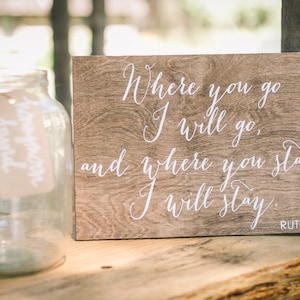 Where you go
I will go,
and where you sta
I will stay.
RUT